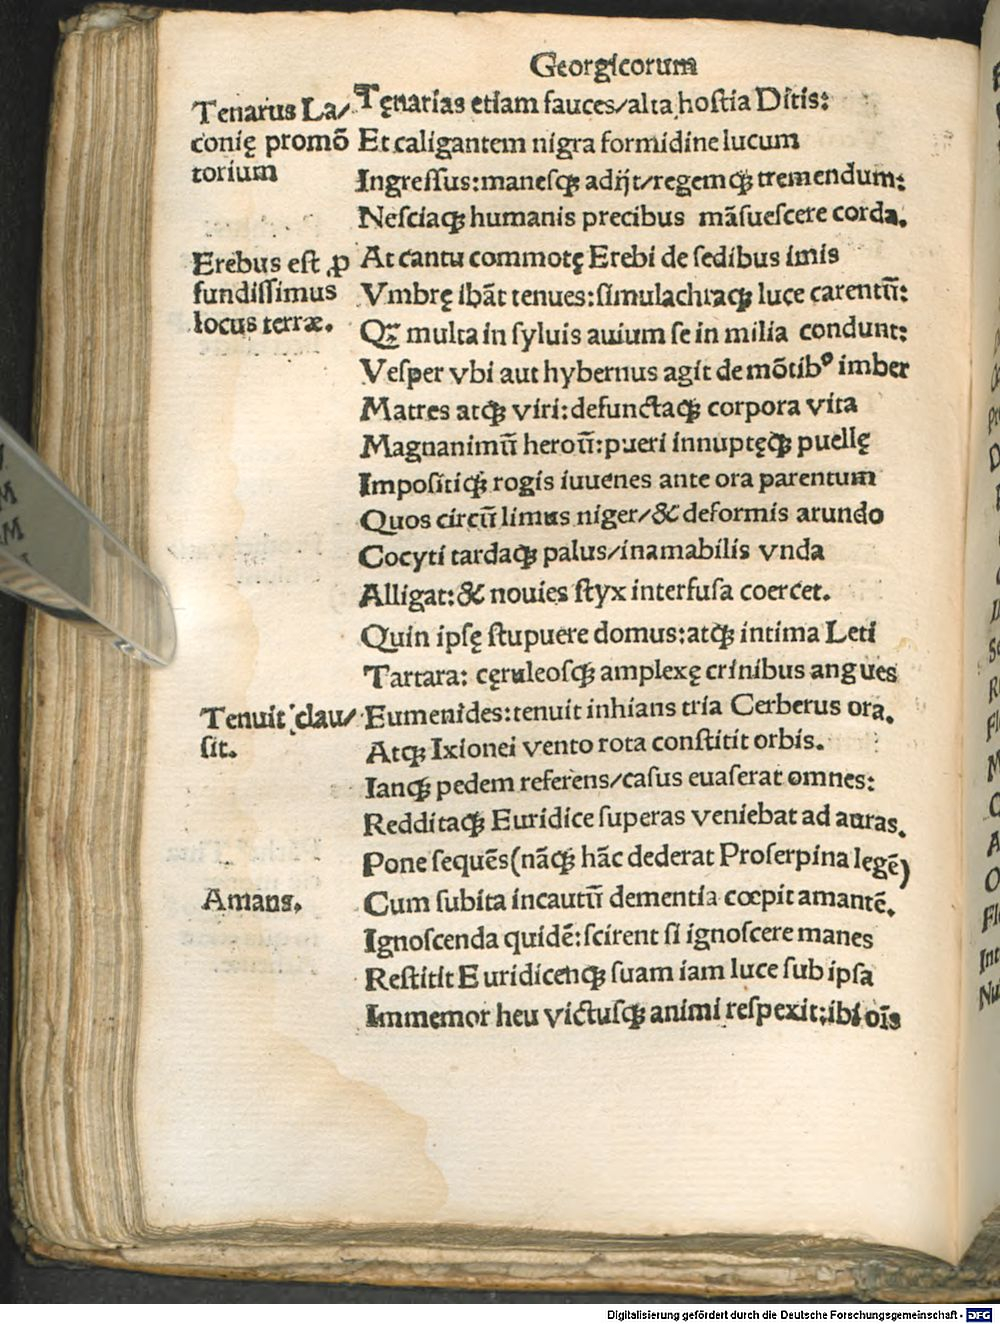 Georgicorum
Tenarus La/
conię promõ
torium
Tęnarias etiam fauces/alta hoſtia Ditis:
Et caligantem nigra formidine lucum
Ingreſſus:maneſqꝫ adijt/regemqꝫ tremendum:
Neſciaqꝫ humanis precibus mãſueſcere corda.
Erebus eſt ꝓ
fundiſſimus
locus terræ.
At cantu commotę Erebi de ſedibus imis
Vmbrę ibãt tenues:ſimulachraqꝫ luce carentũ:
Qꝫ multa in ſyluis auium ſe in milia condunt:
Veſper vbi aut hybernus agit de mõtibꝰ imber
Matres atqꝫ viri:defunctaqꝫ corpora vita
Magnanimũ heroũ:pueri innuptęqꝫ puellę
Impoſitiqꝫ rogis iuuenes ante ora parentum
Quos circũ limus niger/& deformis arundo
Cocyti tardaqꝫ palus/inamabilis vnda
Alligat:& nouies ſtyx interfuſa coercet.
Quin ipſę ſtupuere domus:atqꝫ intima Leti
Tartara: cęruleoſqꝫ amplexę crinibus angues
Tenuit clau/
ſit.
Eumenides:tenuit inhians tria Cerberus ora.
Atqꝫ Ixionei vento rota conſtitit orbis.
Ianqꝫ pedem referens/caſus euaſerat omnes:
Redditaqꝫ Euridice ſuperas veniebat ad auras.
Pone ſequẽs(nãqꝫ hãc dederat Proſerpina legẽ)
Amans.
Cum ſubita incautũ dementia cœpit amantẽ.
Ignoſcenda quidẽ:ſcirent ſi ignoſcere manes
Reſtitit Euridicenqꝫ ſuam iam luce ſub ipſa
Immemor heu victuſqꝫ animi reſpexit:ibi oĩs
Digitalisierung gefördert durch die Deutsche Forschungsgemeinschaft - DFG